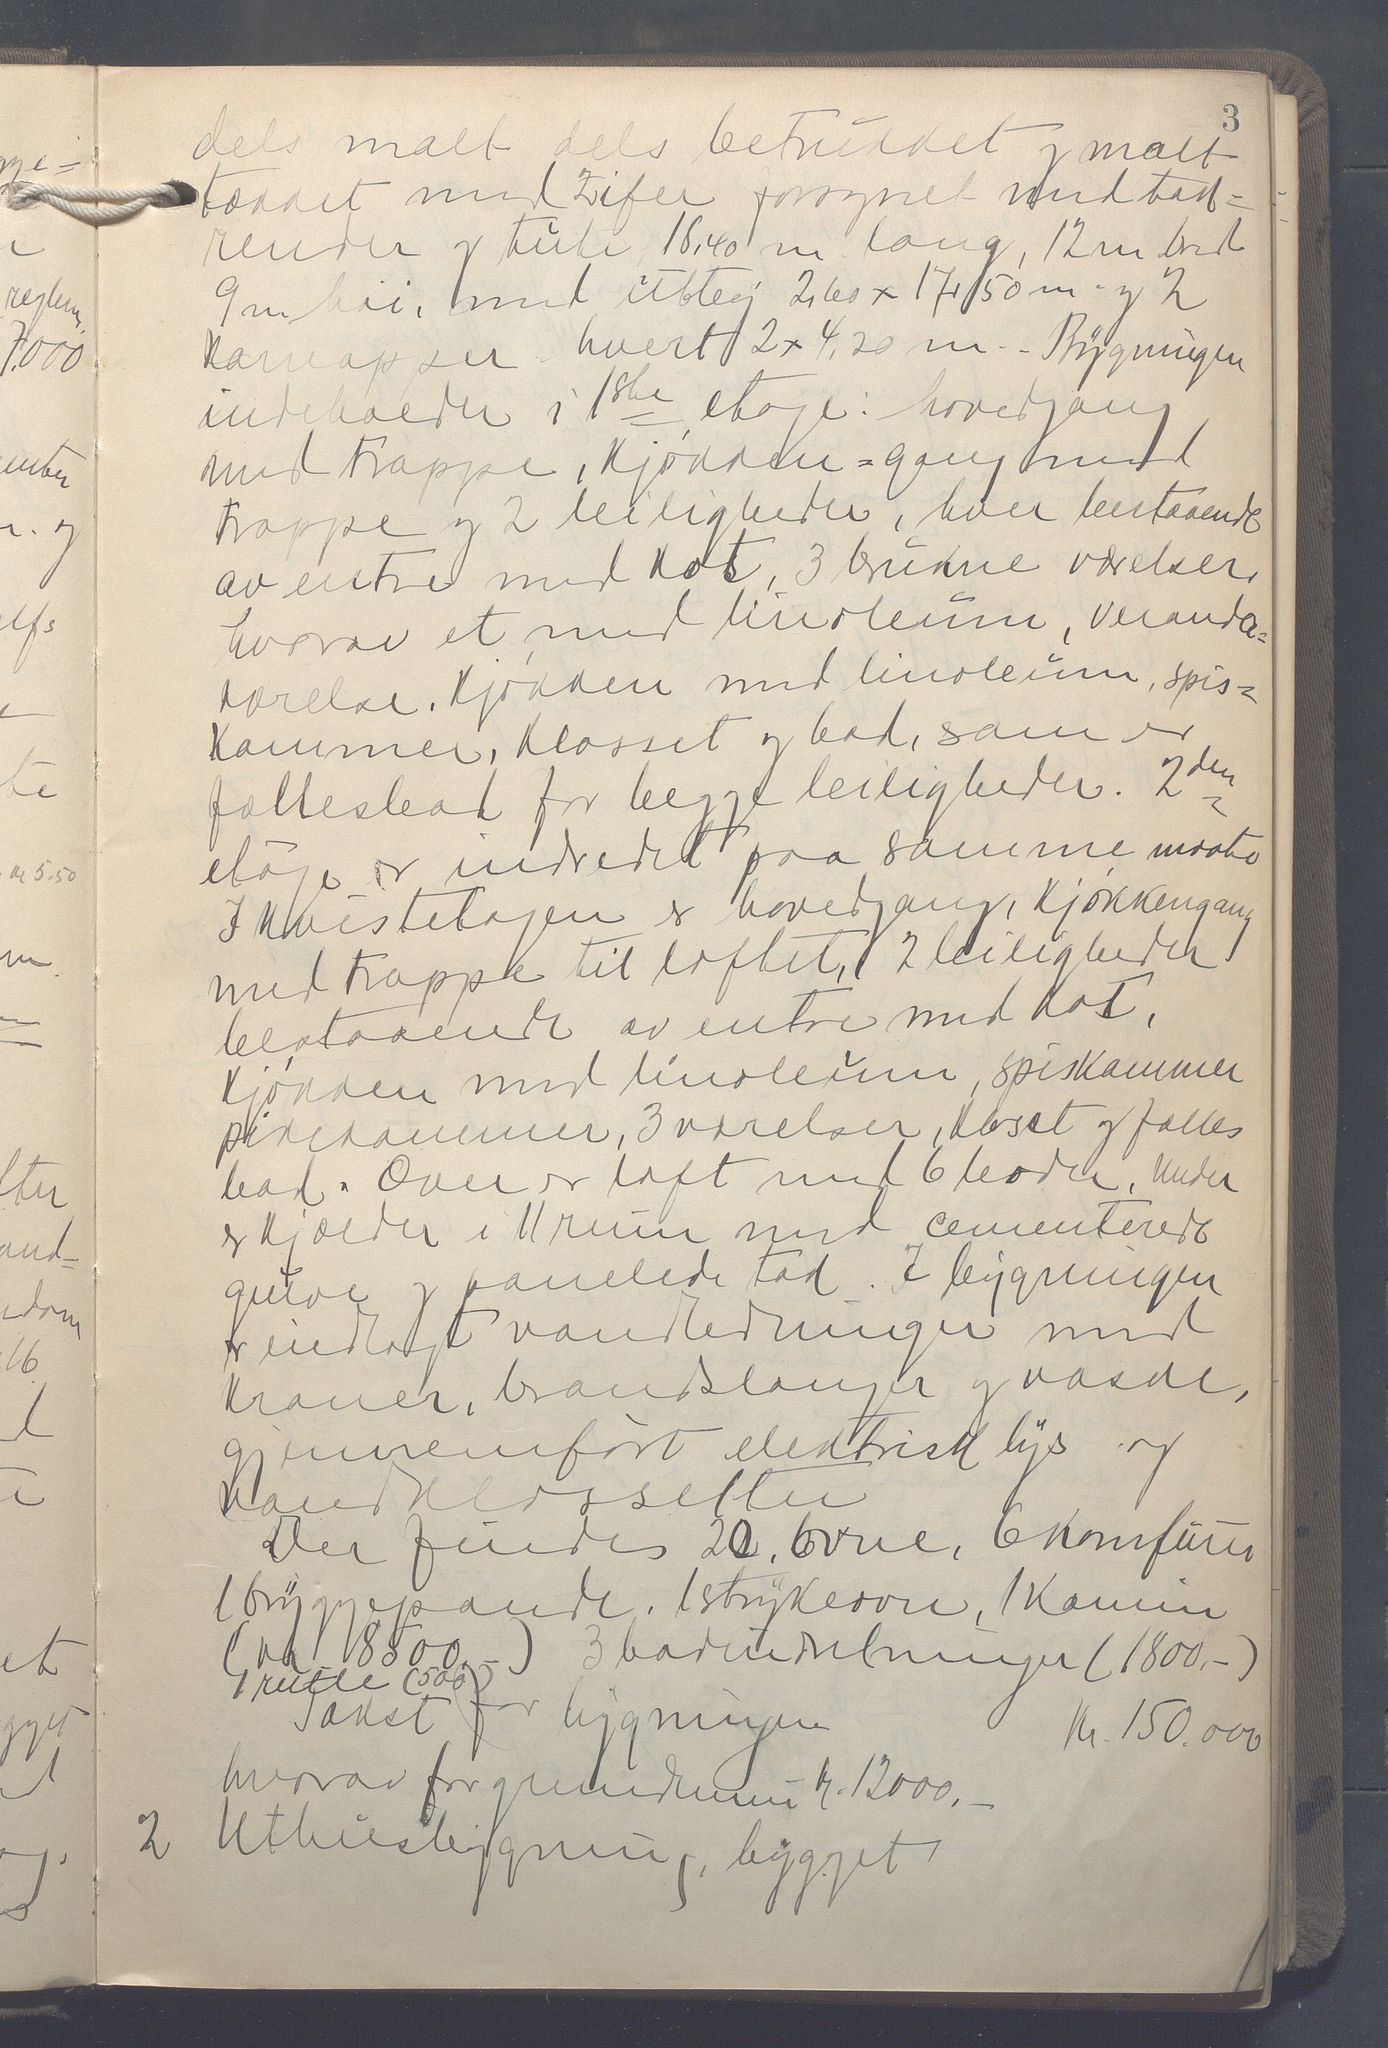 3
dels malt dels betrukket og malt
tækket med Zifer forsynet med tak=
render og tute 16,40 m lang, 12 m bred
9 m høi, med utbyg 2,60 x 17,50 m og 2
Karnapper hvert 2 x 4,20 m. - Bygningen
indeholder i 1ste etage: hovedgang
med trappe, Kjøkken=gang med
trappe og 2 leiligheder, hver bestaaende
av entre med Kot, 3 brukne værelser
hvorav et med linoleum, veranda=
værelse, Kjøkken med linoleum, spis=
Kammer, Klosset og bad, som er
fællesbad for begge leiligheder. 2den
etage er indredet paa samme maate
I Kvistetagen er hovedgang, Kjøkkengang
med trappe til loftet, 2 leiligheder
bestaaende av entre med Kot,
Kjøkken med linoleum, spiskammer
pikekammer, 3 værelser, Kloset og fælles
bad. Over er loft med 6 boder, Under
er Kjælder i 4 rum med cementerede
gulve og panelede tak. I bygningen
er indlagt vandledninger med
Kraner, brandslanger og vaske,
gjennemført elektrisk lys og
vandklossetter
Der findes 20 ovne, 6 Komfurer
1 bryggepande, 1 strykeovn, 1 Kamin
(Kr 18500.-) 3 badeindretninger (1800.-)
1 rulle (500)
Takst for bygningen Kr. 150.000
hvorav for grundmur Kr. 12000.-
2 Uthusbygning, bygget